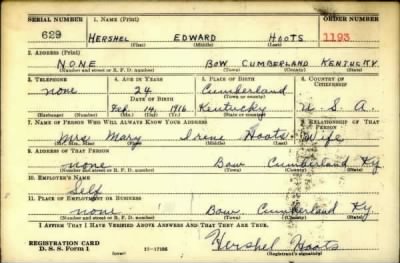 SERIAL NUMBER 1. NAME (Print) ORDER NUMBER
629 HERSHEL EDWARD HOOTS 1193
(First) (Middle) (Last)
2. ADDRESS (Print)
NONE BOW CUMBERLAND KENTUCKY
(Number and street or R. F. D. number) (Town) (County) (State)
3. TELEPHONE 4. AGE IN YEARS 5. PLACE OF BIRTH 6. COUNTRY OF CITIZENSHIP
none 24 Cumberland
DATE OF BIRTH (Town or county)
Feb. 14, 1916 Kentucky U. S. A.
7. NAME OF PERSON WHO WILL ALWAYS KNOW YOUR ADDRESS 8. RELATIONSHIP OF THAT PERSON
Mrs. Mary Irene Hoots Wife
(Mr., Mrs., Miss) (First) (Middle) (Last)
9. ADDRESS OF THAT PERSON
none Bow Cumberland Ky
(Number and street or R. F. D. number) (Town) (County) (State)
10. EMPLOYER'S NAME
Self
11. PLACE OF EMPLOYMENT OR BUSINESS
none Bow Cumberland Ky
(Number and street or R. F. D. number) (Town) (County) (State)
I AFFIRM THAT I HAVE VERIFIED ABOVE ANSWERS AND THAT THEY ARE TRUE.
REGISTRATION CARD
D. S. S. Form 1 Hershel Hoots
(Registrant's signature)